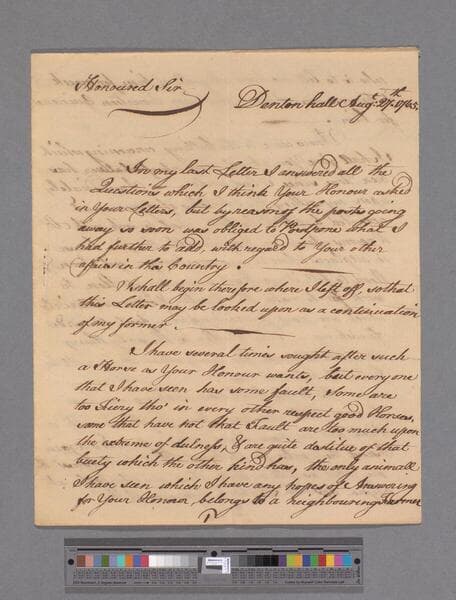 Honoured Sir
Denton hall Augt. 27th. 1765.
In my last Letter I answered all the
Questions which I think Your Honour asked
in Your Letters, but by reason of the posts going
away so soon was obliged to Postpone what I
had further to add, with regard to Your other
affairs in this Country.
I shall begin therefore where I left off, so that
this Letter may be looked upon as a continuation
of my former.
I have several times sought after such
a Horse as Your Honour wants, but every one
that I have seen has some fault, Some are
too Fiery tho' in every other respect good Horses,
some that have not that Fault are too much upon
the extreme of dulness, & are quite destitue of that
buety which the other kind has, the only animall
I have seen which I have any hopes of Answering
for Your Honour, belongs to a neighbouring Farmer